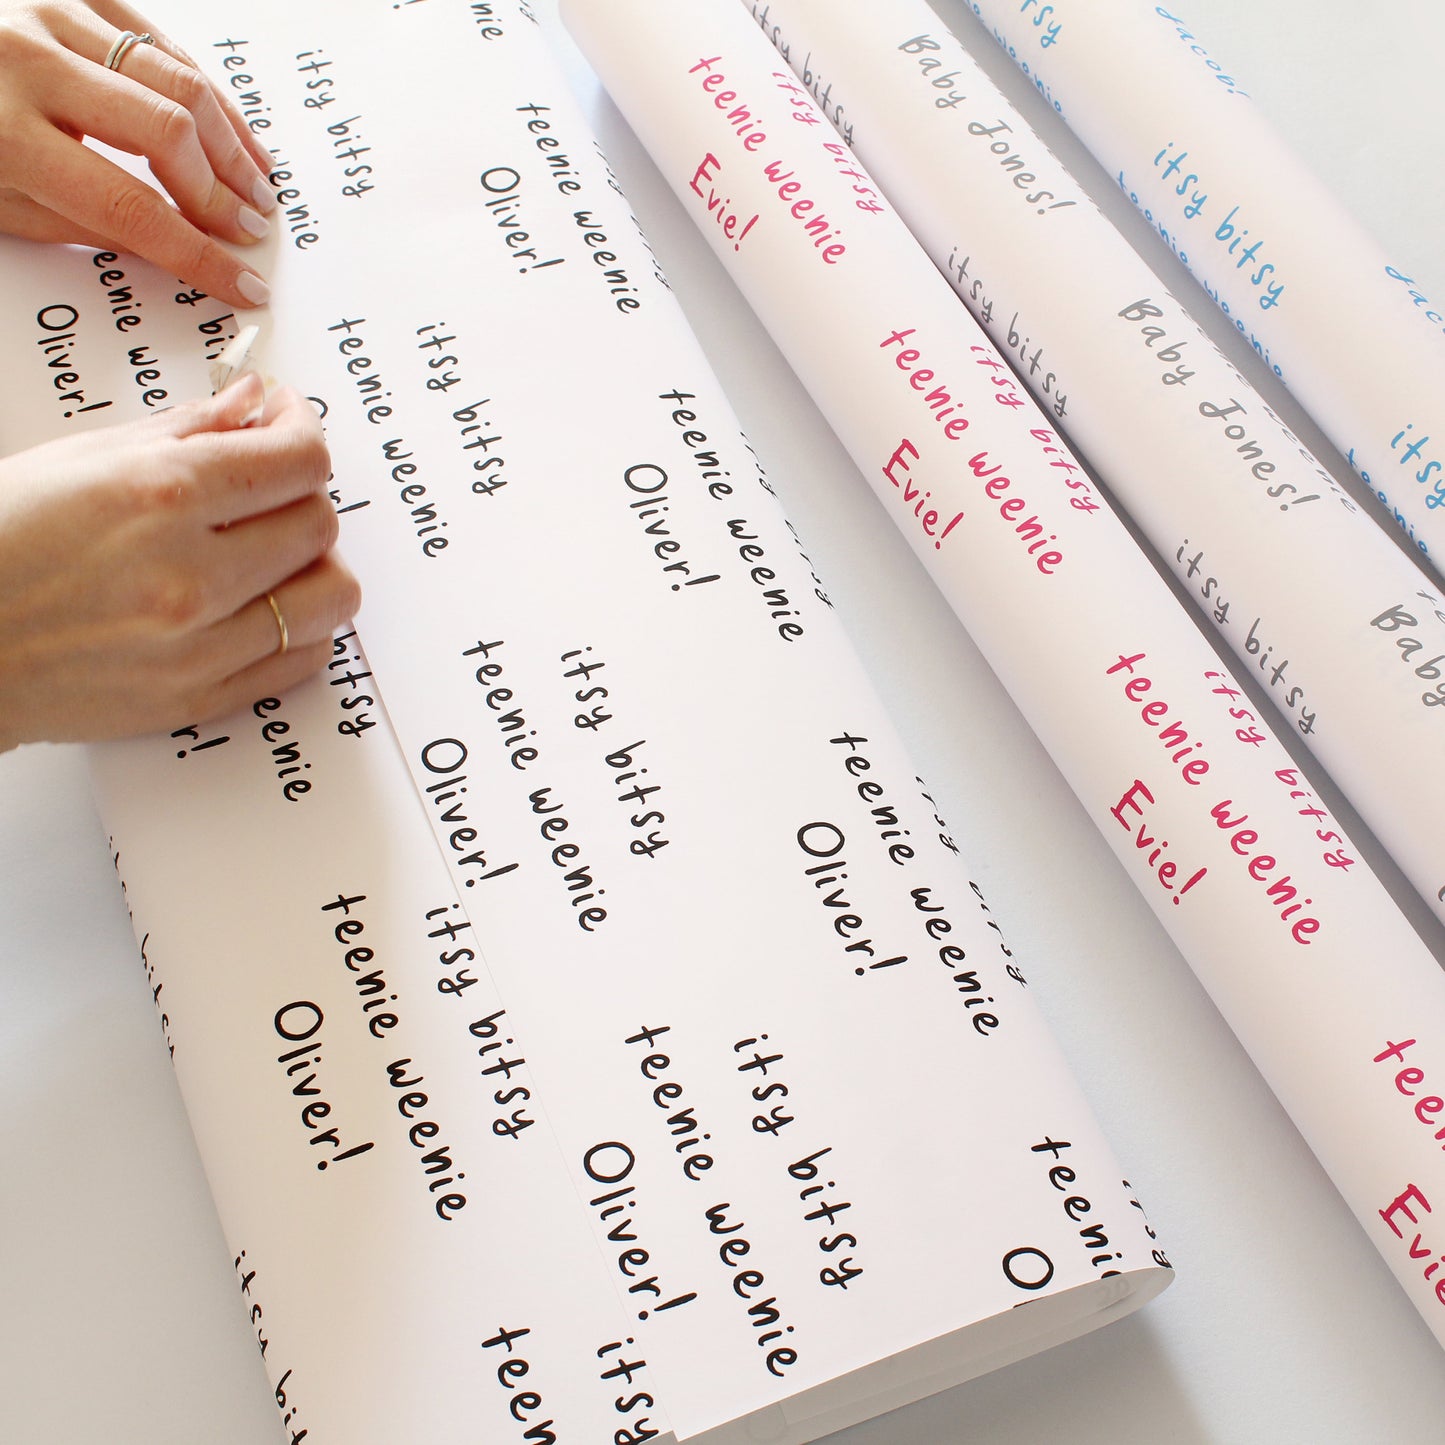 itsy bitsy
teenie weenie
Oliver!
itsy bitsy
teenie weenie
Oliver!
itsy bitsy
teenie weenie
Oliver!
itsy bitsy
teenie weenie
Oliver!
itsy bitsy
teenie weenie
Oliver!
itsy bitsy
teenie weenie
Oliver!
teenie weenie
Oliver!
teenie weenie
Oliver!
itsy bitsy
teenie weenie
Evie!
itsy bitsy
teenie weenie
Evie!
itsy bitsy
teenie weenie
Evie!
itsy bitsy
Baby Jones!
itsy bitsy
teenie weenie
Baby Jones!
itsy bitsy
Baby
Jacob!
itsy bitsy
teenie weenie
itsy